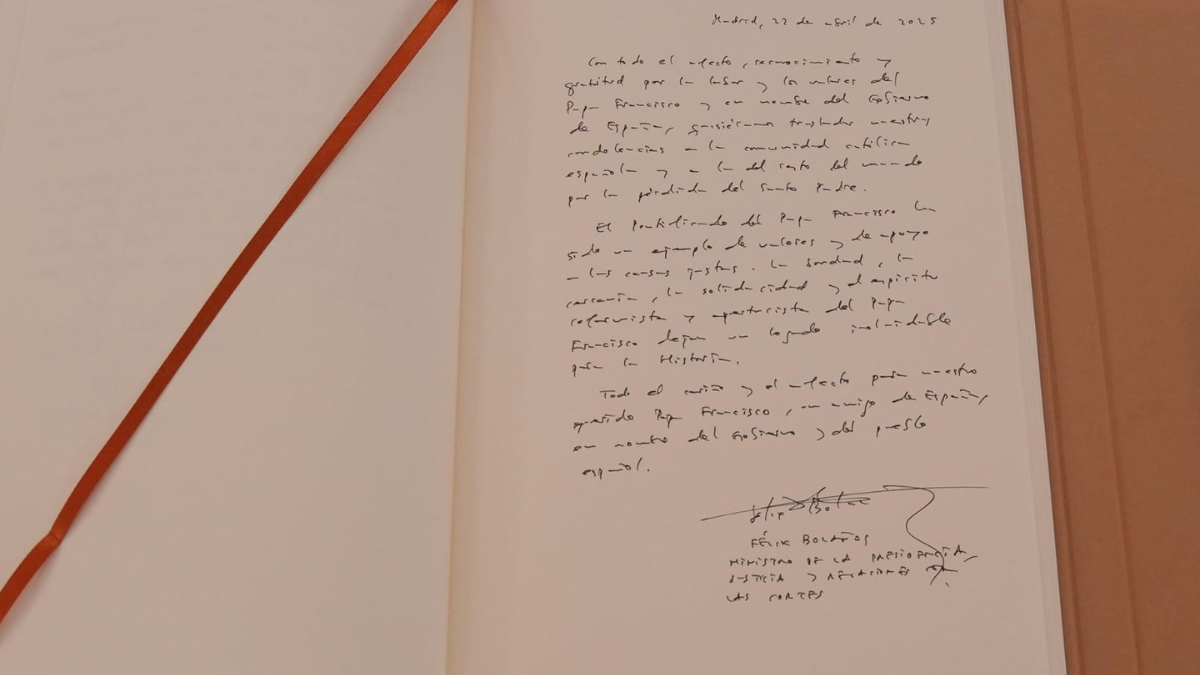 Madrid, 22 de abril de 2025
Con todo el afecto, reconocimiento y
gratitud por la labor y los valores del
Papa Francisco y en nombre del Gobierno
de España, quisiéramos trasladar nuestras
condolencias a la comunidad católica
española y a la del resto del mundo
por la pérdida del Santo Padre.
El Pontificado del Papa Francisco ha
sido un ejemplo de valores y de apoyo
a las causas justas. La bondad, la
cercanía, la solidaridad y el espíritu
reformista y aperturista del Papa
Francisco dejan un legado inolvidable
para la Historia.
Todo el cariño y el afecto para nuestro
querido Papa Francisco, un amigo de España,
en nombre del Gobierno y del pueblo
español.
Félix Bolaños
FÉLIX BOLAÑOS
MINISTRO DE LA PRESIDENCIA,
JUSTICIA Y RELACIONES CON
LAS CORTES